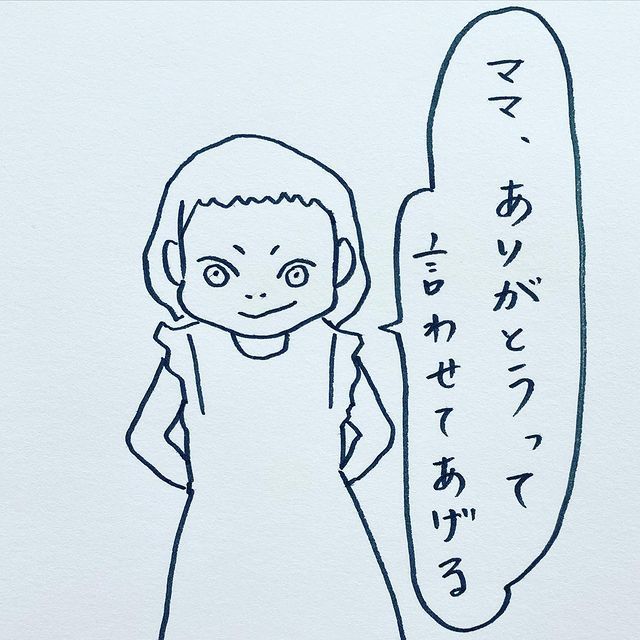 ママ、ありがとうって
言わせてあげる